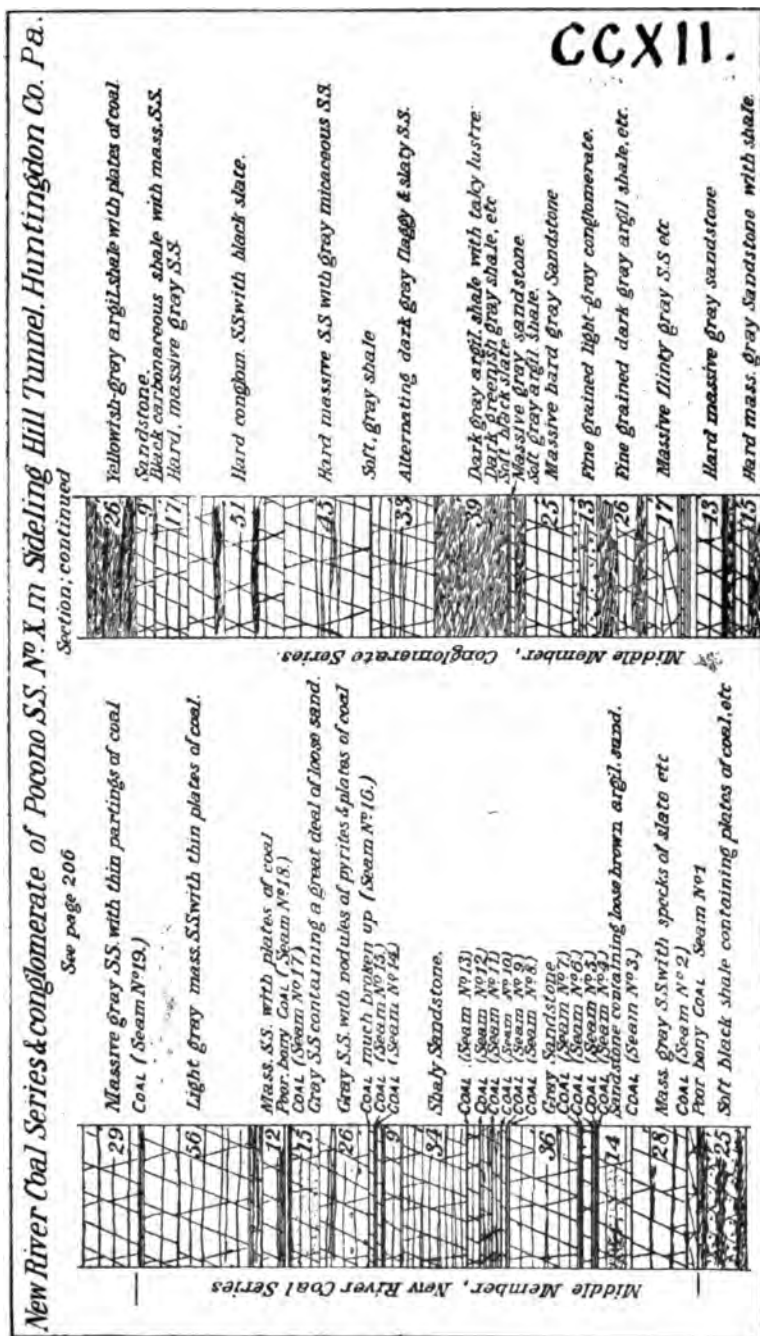 CCXII.
New River Coal Series & conglomerate of Pocono S.S. Nº X. in Sideling Hill Tunnel, Huntingdon Co. Pa.
See page 206
Section; continued
29 Massive gray S.S. with thin partings of coal
COAL (Seam Nº 19.)
56 Light gray mass. S.S. with thin plates of coal.
12 Mass. S.S. with plates of coal
Poor bony COAL (Seam Nº 18.)
COAL (Seam Nº 17)
15 Gray S.S containing a great deal of loose sand.
26 Gray S.S. with nodules of pyrites & plates of coal
COAL much broken up (Seam Nº 16.)
COAL (Seam Nº 15.)
COAL (Seam Nº 14.)
9
34 Shaly Sandstone.
COAL (Seam Nº 13)
COAL (Seam Nº 12)
COAL (Seam Nº 11.)
COAL (Seam Nº 10)
COAL (Seam Nº 9.)
COAL (Seam Nº 8.)
36 Gray Sandstone
COAL (Seam Nº 7.)
COAL (Seam Nº 6.)
COAL (Seam Nº 5.)
COAL (Seam Nº 4.)
14 Sandstone containing loose brown argil. sand.
COAL (Seam Nº 3.)
28 Mass. gray S.S. with specks of slate etc
COAL (Seam Nº 2)
Poor bony COAL Seam Nº 1
25 Soft black shale containing plates of coal, etc
Middle Member, New River Coal Series
26 Yellowish-gray argil. shale with plates of coal
9 Sandstone.
Black carbonaceous shale with mass. S.S.
17 Hard, massive gray S.S.
51 Hard conglom. S.S with black slate.
45 Hard massive S.S with gray micaceous S.S.
Soft, gray shale
33 Alternating dark gray flaggy & slaty S.S.
39 Dark gray argil. shale with talcy lustre
Dark, greenish gray shale, etc
Soft black slate
Massive gray sandstone
Soft gray argil shale.
25 Massive hard gray Sandstone
13 Fine grained light-gray conglomerate.
26 Fine grained dark gray argil shale, etc.
17 Massive flinty gray S.S etc
43 Hard massive gray sandstone
15 Hard mass. gray Sandstone with shale.
Middle Member, Conglomerate Series.